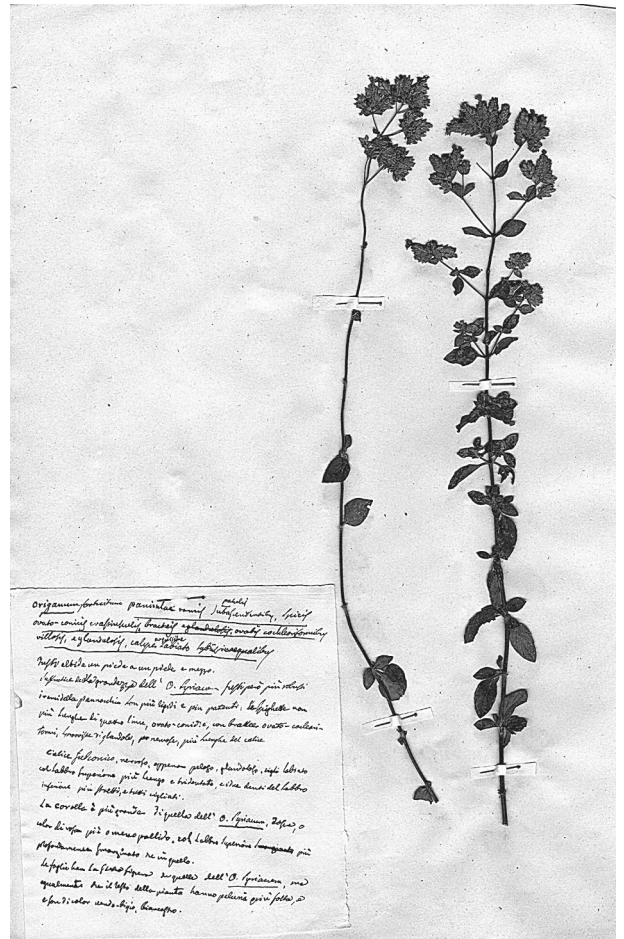 origanum, paniculae ramis patulis subascendentibus, spicis
ovato-conicis crassiusculis, bracteis eglandulosis, ovatis cochleariformibus
villosis, eglandulosis, calyce labiato labiis inaequalibus
Fusto alto da un piede a un piede e mezzo.
della grandezza dell' O. Syriacum, fusti però più robusti
i rami della pannocchia son più rigidi e più patenti, le spighette non
più lunghe di quattro linee, ovato-coniche, con brattee ovato-coclearis-
formi, eglandolose, più lunghe del calice
Calice nervoso, appena peloso, glandoloso, labiato
col labbro superiore più lungo e tridentato, e i due denti del labbro
inferiore più stretti, e tutti cigliati.
La corolla è più grande di quella dell' O. Syriacum, o
color di rosa più o meno pallido, col labbro superiore più
profondamente smarginato che in quello.
Le foglie han la stessa figura di quelle dell' O. Syriacum, ma
egualmente che il resto della pianta hanno peluria più folta, e
e son di color verde-bigio, biancastro.